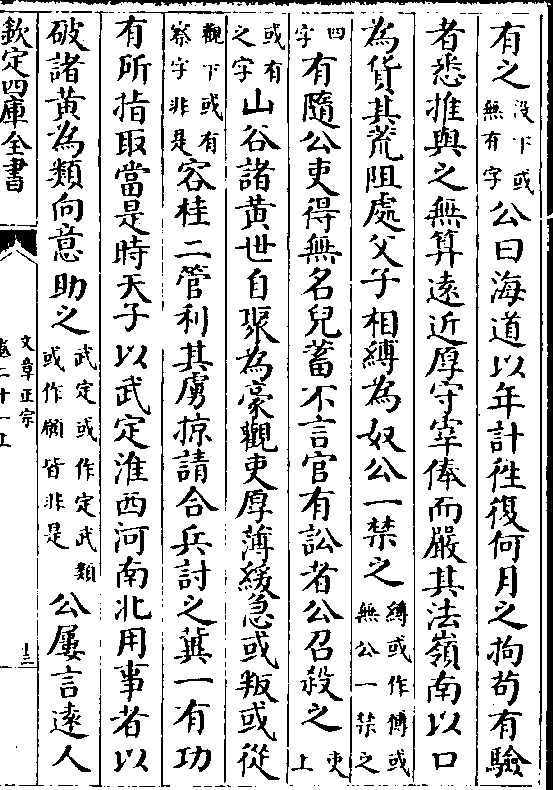 有之沒下或無有字公曰海道以年計徃復何月之拘茍有驗
者悉推與之無算逺近厚守宰俸而嚴其法嶺南以口
為貨其荒阻處父子相縛為奴公一禁之縛或作傅或無公一禁之
四字有隨公吏得無名兒蓄不言官有訟者公召殺之吏上
或有之字山谷諸黄世自聚為豪觀吏厚薄緩急或叛或從
觀下或有察字非是容桂二管利其虜掠請合兵討之兾一有功
有所指取當是時天子以武定淮西河南北用事者以
破諸黄為類向意助之武定或作定武類或作願皆非是公屢言逺人
欽定四庫全書
文章正宗
卷二十一上
十三